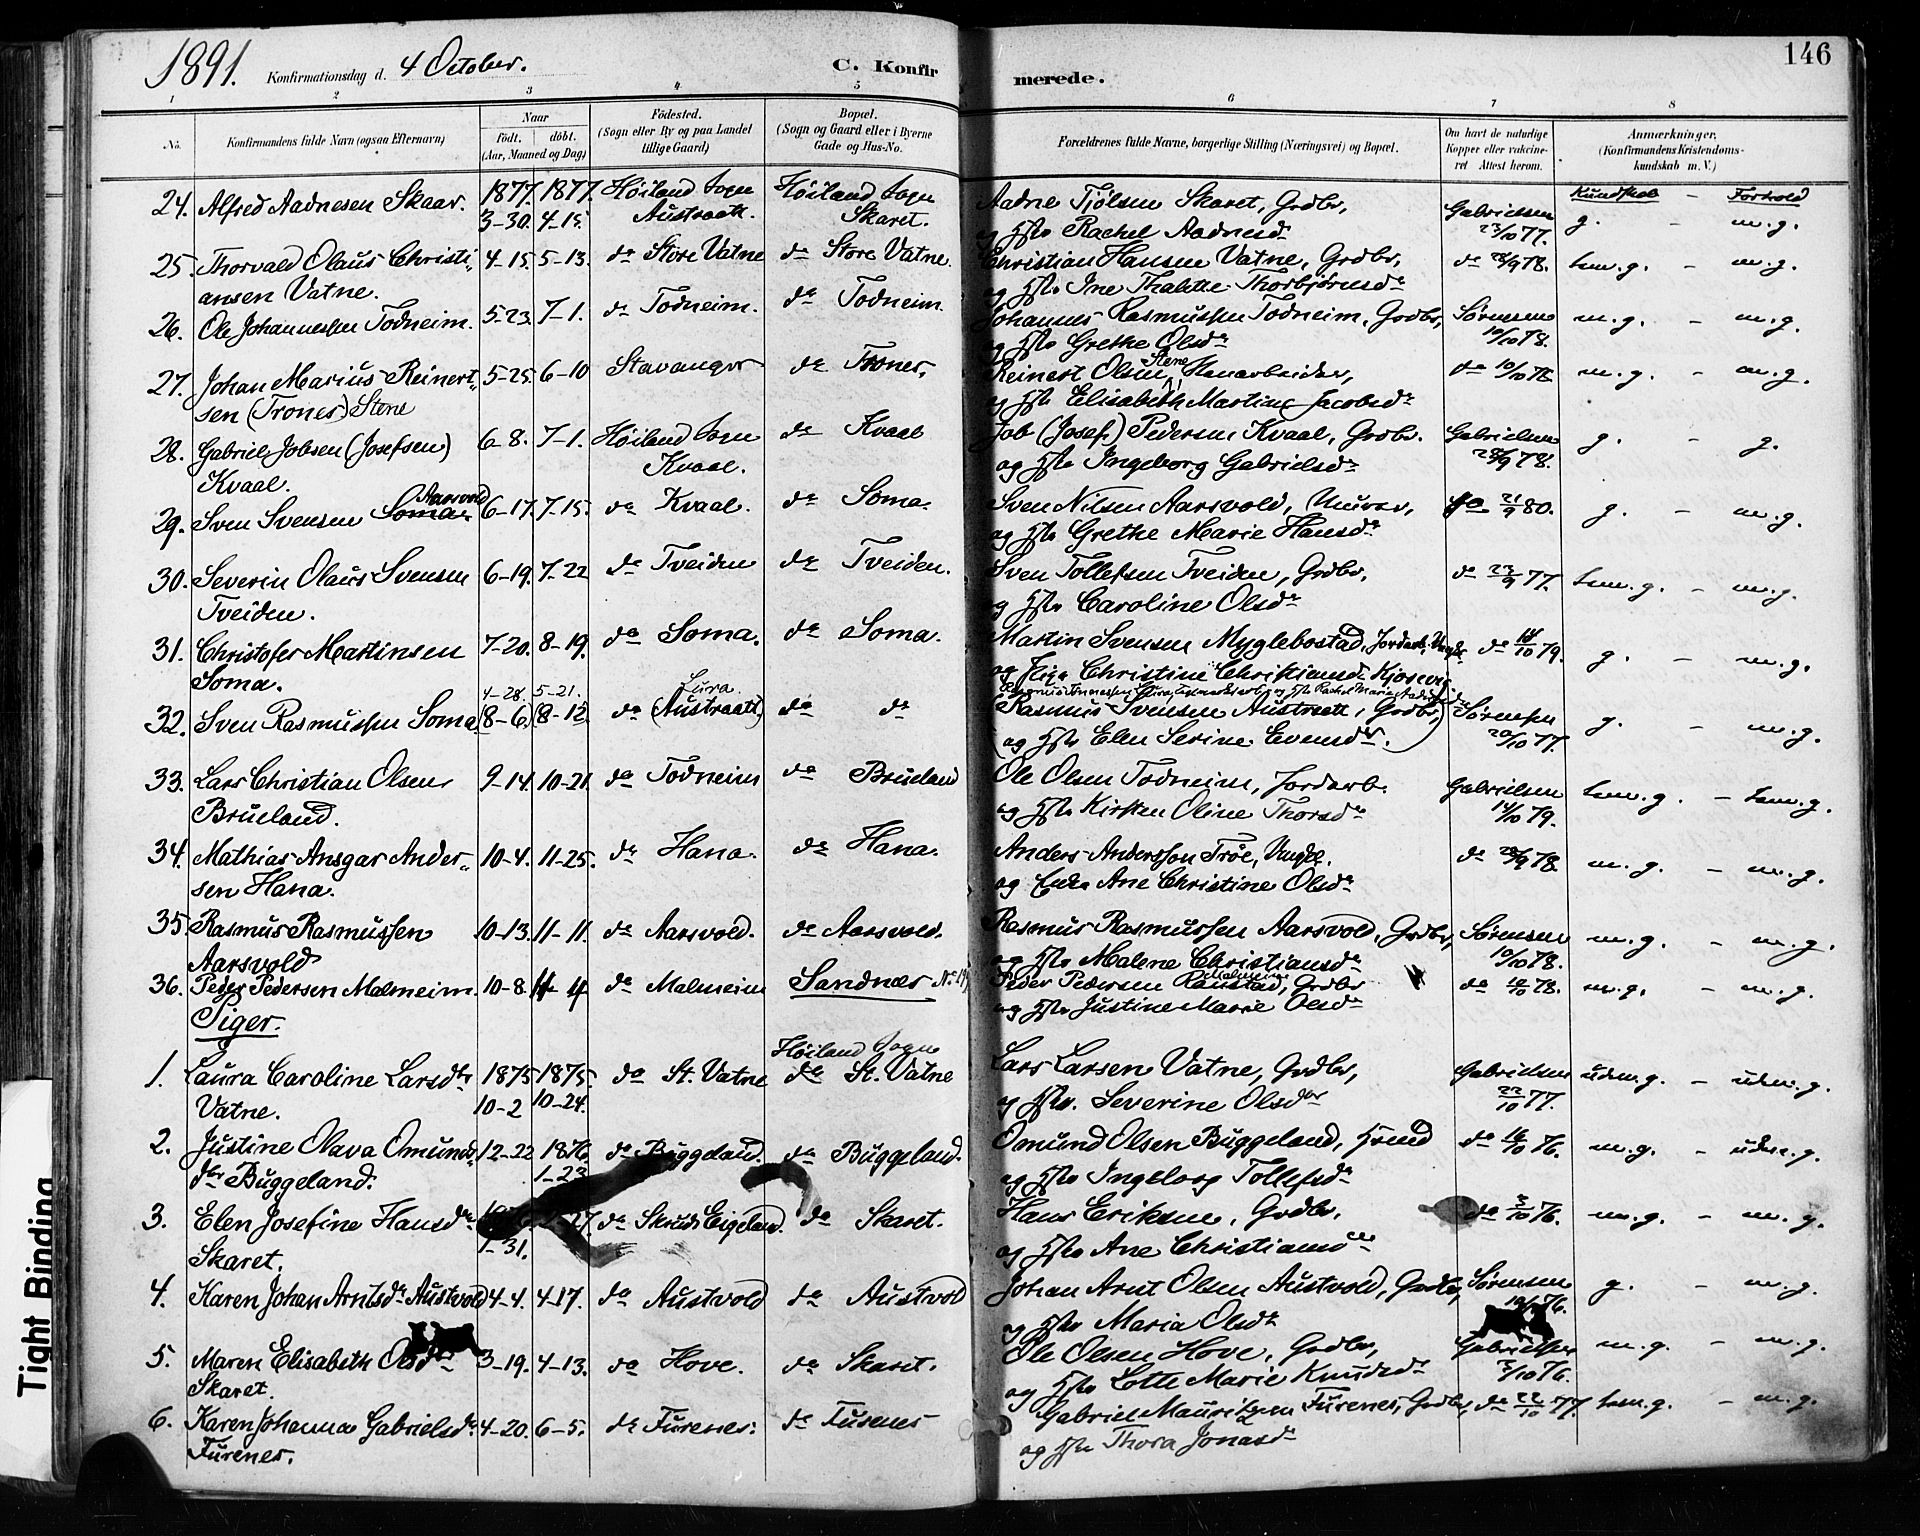 1891.
Konfirmationsdag d. 4 October.
C. Konfirmerede.
146
1 2 3 4 5 6 7 8
No.
Konfirmandens fulde Navn (ogsaa Efternavn)
Naar
født. døbt.
(Aar, Maaned og Dag)
Fødested.
(Sogn eller By og paa Landet
tillige Gaard)
Bopæl.
(Sogn og Gaard eller i Byerne
Gade og Hus-No.
Forældrenes fulde Navne, borgerlige Stilling (Næringsvei) og Bopæl.
Om havt de naturlige
Kopper eller vakcine-
ret Attest herom.
Anmærkninger.
(Konfirmandens Kristendoms-
kundskab m. V.)
Kundskab – Forhold
24. Alfred Aadnesen Skaar. 1877. 1877. Høiland Sogn Høiland Sogn Aadne Tjølsen Skaret, Grdbr, Gabrielsen
3-30. 4-15. Austraatt. Skaret. og Hstr Rachel Aadnesdr 23/10 77. g. – m.g.
25. Thorvald Olaus Christi- 4-15. 5-13. do Store Vatne do Store Vatne. Christian Hansen Vatne, Grdbr, do 28/9 78. tem.g. – m.g.
ansen Vatne. og Hstr Ine Thalette Thorbjørnsdr
26. Ole Johannessen Todneim. 5-23. 7-1. do Todneim. do Todneim. Johannes Rasmussen Todneim, Grdbr, Sørensen m.g. – m.g.
og Hstr Grethe Olsdr 10/10 78.
27. Johan Marius Reinert- 5-25. 6-10 Stavanger do Trones, Reinert Olsen Stene, Stenarbeider, do 10/10 78. m.g. – m.g.
sen (Trones) Stene og Hstr Elisabeth Martine Jacobsdr
28. Gabriel Jobsen (Josefsen) 6-8. 7-1. Høiland Sogn do Kvaal Job (Josef) Pedersen Kvaal, Grdbr. Gabrielsen g. – g.
Kvaal. Kvaal. og Hstr Ingeborg Gabrielsdr 28/9 78.
29. Sven Svensen Soma Aarsvold 6-17. 7-15. do Kvaal. do Soma. Sven Nilsen Aarsvold, Murer, do 21/9 80. g. – m.g.
og Hstr Grethe Marie Hansdr
30. Severin Olaus Svensen 6-19. 7-22 do Tveiden do Tveiden. Sven Tollefsen Tveiden, Grdbr, do 23/9 77. tem.g. – m.g.
Tveiden. og Hstr Caroline Olsdr
31. Christofer Martinsen 7-20. 8-19. do Soma. do Soma. Martin Svensen Myglebostad, Jordarb., Ungk. do 14/10 79. g. – m.g.
Soma. og Pige Christine Christiansdr Kjosevig
4-28. 5-21. Lura.
32. Sven Rasmussen Soma (8-6.) (8-12.) do (Austraatt) do do (Rasmus Svensen Austraatt, Grdbr, Sørensen g. – m.g.
og Hstr Elen Serine Evensdr.) 20/10 77.
33. Lars Christian Olsen 9-14. 10-21. do Todneim do Brueland Ole Olsen Todneim, Jordarb. Gabrielsen tem.g. – tem.g.
Brueland. og Hstr Kirsten Oline Thorsdr 14/10 79.
34. Mathias Ansgar Ander- 10-4. 11-25. do Hana. do Hana. Anders Andersson Trøe, Ungk. do 28/9 78. m.g. – m.g.
sen Hana. og Enke Ane Christine Olsdr
35. Rasmus Rasmussen 10-13. 11-11. do Aarsvold. do Aarsvold. Rasmus Rasmussen Aarsvold, Grdbr, Sørensen m.g. – m.g.
Aarsvold og Hstr Malene Christiansdr 10/10 78.
36. Peder Pedersen Malmeim. 10-8. 11-4 do Malmeim Sandnæs Peder Pedersen Malmeim, Grdbr do 10/10 78. m.g. – m.g.
og Hstr Justine Marie Olsdr
Piger.
Høiland Sogn
1. Laura Caroline Larsdtr 1875 1875. do St. Vatne do St. Vatne Lars Larsen Vatne, Grdbr, Gabrielsen udm.g. – udm.g.
Vatne. 10-2 10-24. og Hstr. Severine Olsdtr 22/10 77.
2. Justine Olava Omunds- 12-22 1876 do Buggeland. do Buggeland. Omund Olsen Buggeland, Hmd do 16/10 76. m.g. – udm.g.
dtr Buggeland. 1-23 og Hstr Ingeborg Tollefsdr
3. Elen Josefine Hansdr do Skruds Eigeland. do Skaret. Hans Eriksen, Grdbr, do 3/10 76. m.g. – m.g.
Skaret. 1-31. og Hstr Ane Christiansdtr
4. Karen Johan Arntsdr Austvold 4-4. 4-17. do Austvold do Austvold Johan Arnt Olsen Austvold, Grdbr, Sørensen g. – m.g.
og Hstr Maria Olsdr
5. Maren Elisabeth Olsdr 3-19. 4-13. do Hove. do Skaret. Ole Olsen Hove, Grdbr, Gabrielsen m.g. – m.g.
Skaret. og Hstr Lotte Marie Knudsdr 3/10 76.
6. Karen Johanna Gabrielsdr 4-20. 6-5. do Furenes. do Furenes Gabriel Mauritzen Furenes, Grdbr, do 22/10 77. tem.g. – m.g.
Furenes. og Hstr Thora Jonasdr
Tight Binding